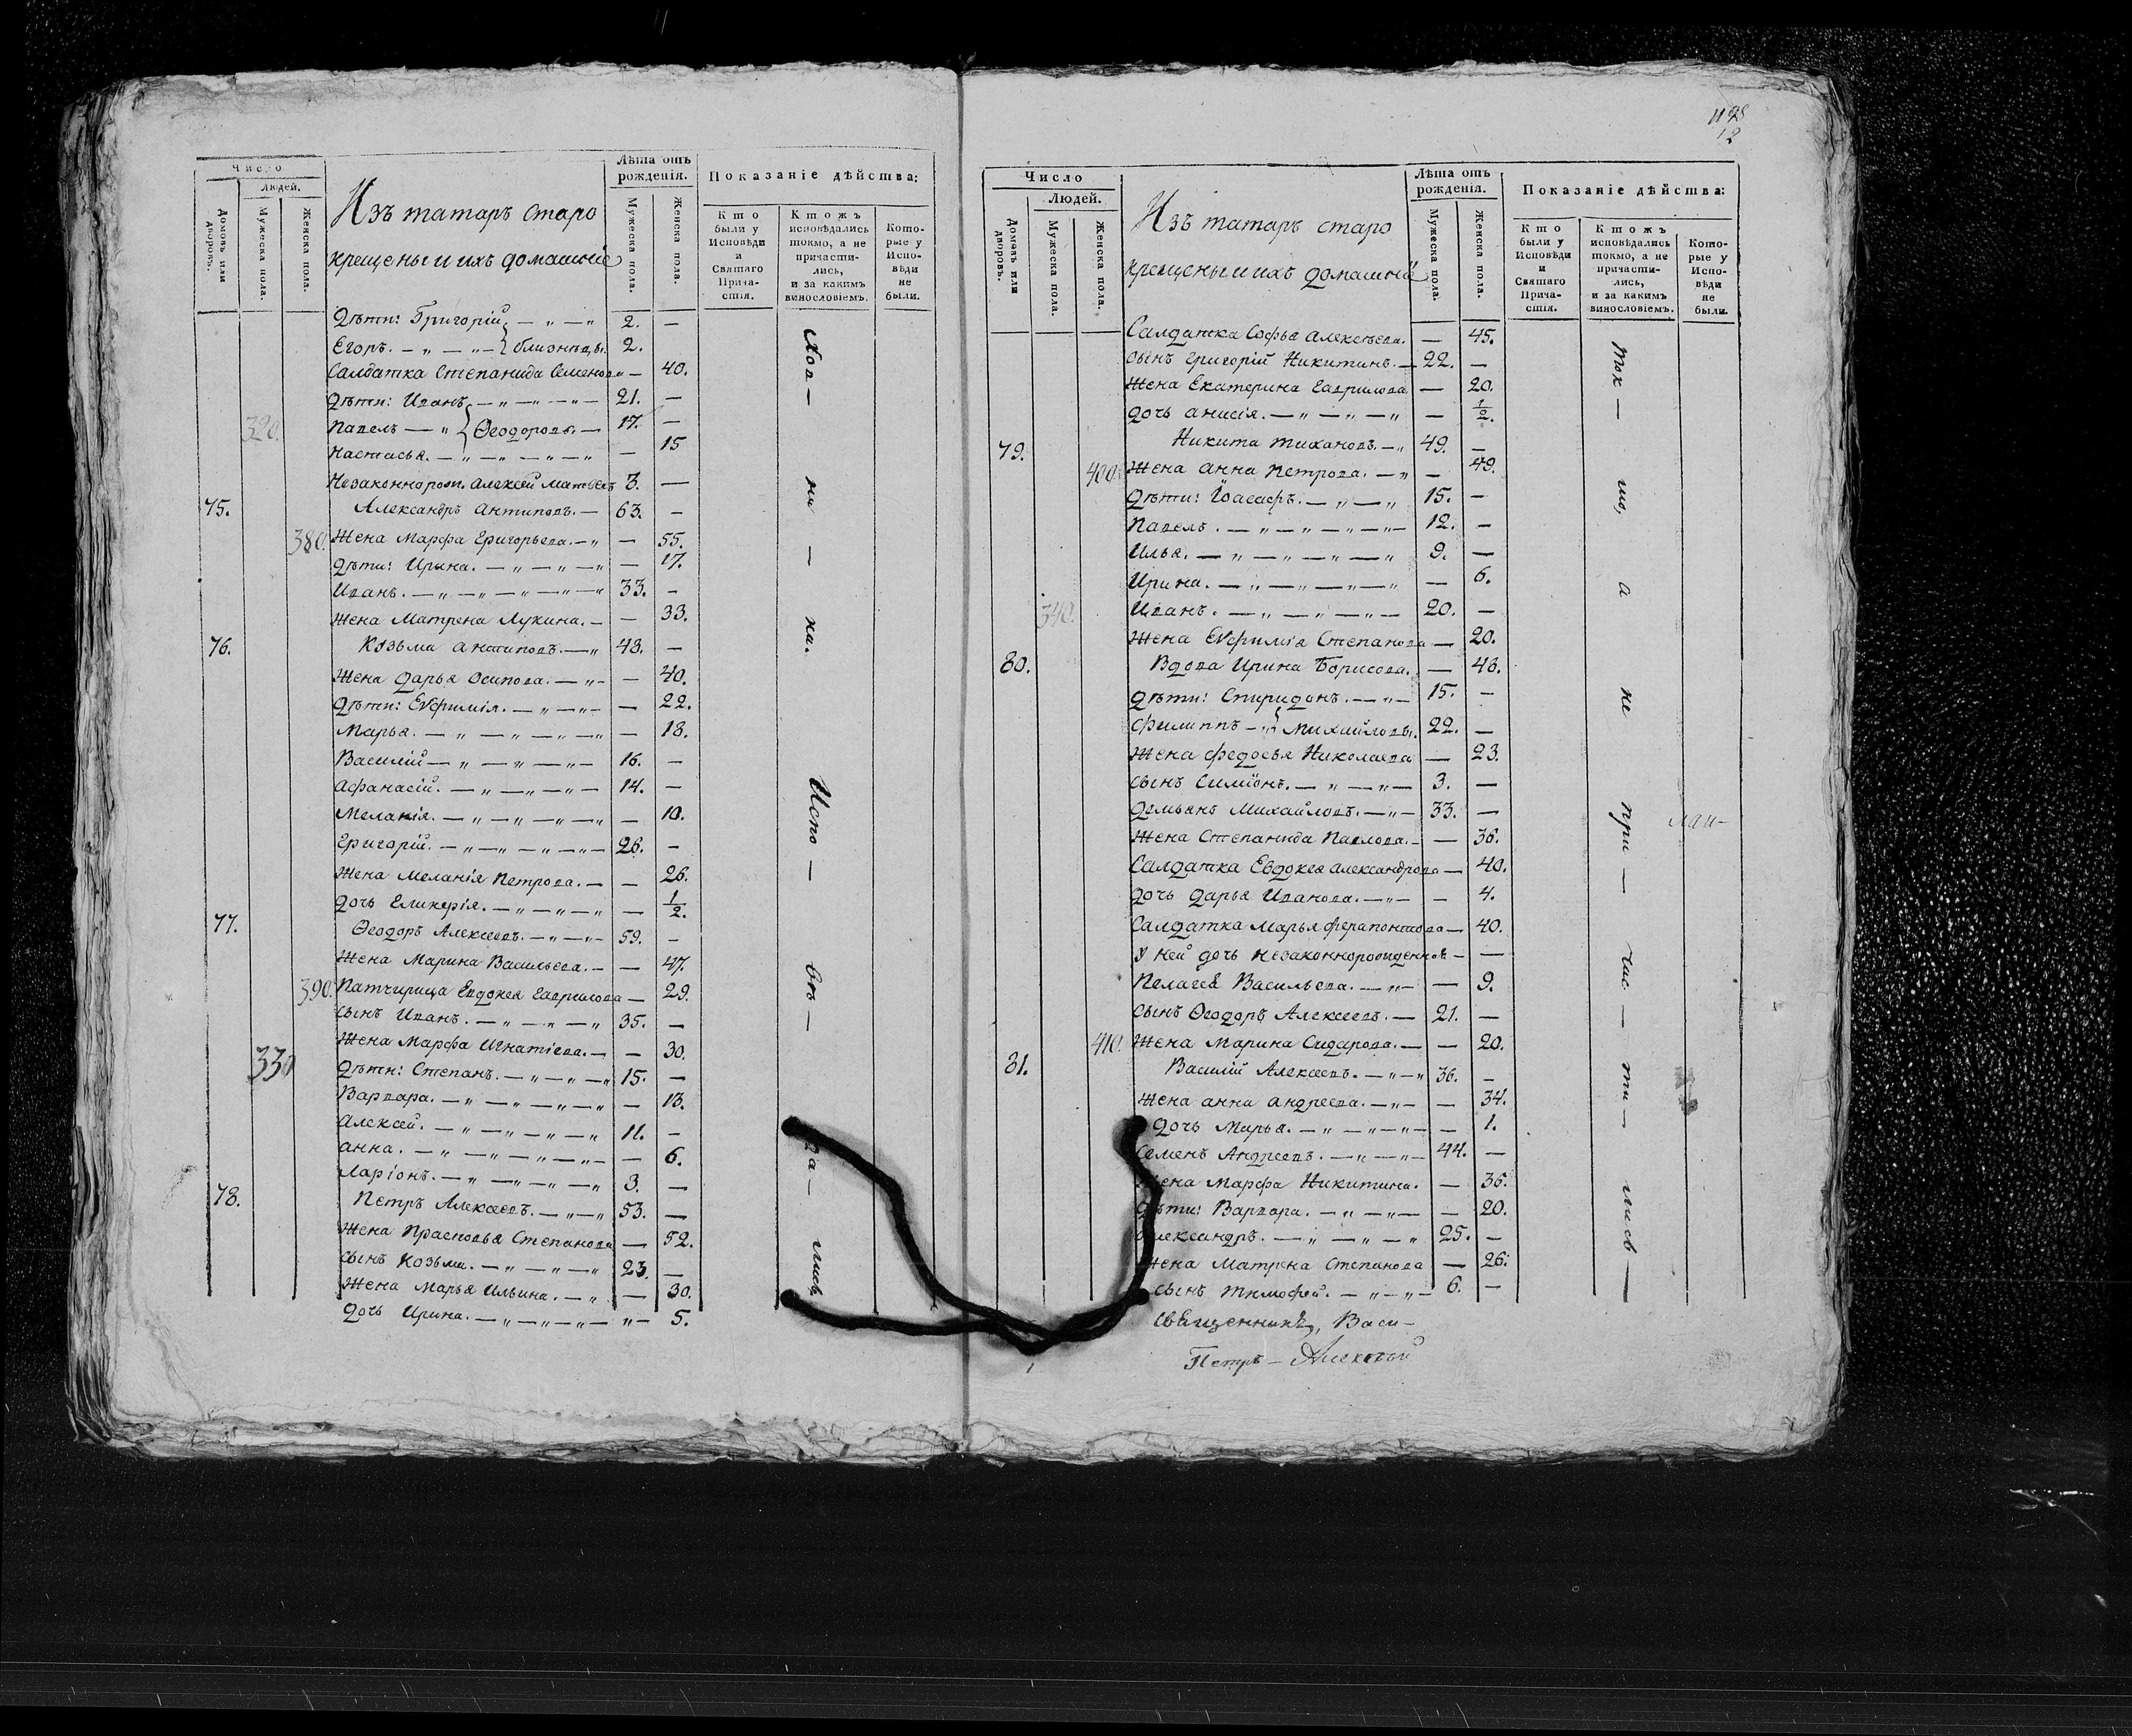 Число
Людей.
Домовъ или дворовъ.
Мужеска пола.
Женска пола.
Изъ татаръ старо
крещены и ихъ домашніе
Лѣта отъ рожденія.
Мужеска пола.
Женска пола.
Показаніе дѣйства:
Кто были у Исповѣди и Святаго Причастія.
Ктожъ исповѣдались токмо, а не причастились, и за какимъ винословіемъ.
Которые у Исповѣди не были.
Дѣти: Григорій — „ — „ 2. —
Егоръ. — „ — „ — близнецы. 2.
Салдатка Степанида Семенова — 40.
Дѣти: Иванъ — „ — „ — „ 21. —
320. Павелъ — „ Ѳеодоровы. — 17. —
Настасья. — „ — „ — „ — „ — 15
Незаконнорож. Алексей Матвеевъ 3. —
75. Александръ Антиповъ. — 63. —
380. Жена Марфа Григорьева. — „ — 55.
Дѣти: Ирина. — „ — „ — „ — 17.
Иванъ. — „ — „ — „ — „ 33. —
Жена Матрена Лукина. — — 33.
76. Козьма Антиповъ. — „ 43. —
Жена Дарья Осипова. — „ — — 40.
Дѣти: Еѵфимія. — „ — „ — — 22.
Марья. — „ — „ — „ — — 18.
Василій — „ — „ — „ — 16. —
Афанасій. — „ — „ — „ — 14. —
Меланія. — „ — „ — „ — „ — 10.
Григорій. — „ — „ — „ — „ — 26. —
Жена Меланія Петрова. — — 26.
Дочь Гликерія. — „ — „ — „ — 1/2.
77. Ѳеодоръ Алексеевъ. — „ — „ — 59. —
Жена Марина Васильева. — — 47.
390. Патчирица Евдокея Гаврилова — 29.
Сынъ Иванъ. — „ — „ — „ 35. —
Жена Марфа Игнатіева. — — 30.
330 Дѣти: Степанъ. — „ — „ — „ 15. —
Варвара. — „ — „ — „ — „ — 13.
Алексей. — „ — „ — „ — „ 11. —
Анна. — „ — „ — „ — „ — — 6.
Ларіонъ. — „ — „ — „ — „ 3. —
78. Петръ Алексеевъ. — „ — „ 53. —
Жена Прасковья Степанова — 52.
Сынъ Козьма. — „ — „ — „ 23. —
Жена Марья Ильина. — „ — 30.
Дочь Ирина. — „ — „ — „ — „ — 5.
Хва — ли — на. Испо — вѣ — да — лись
12
Число
Людей.
Домовъ или дворовъ.
Мужеска пола.
Женска пола.
Изъ татаръ старо
крещены и ихъ домашніе
Лѣта отъ рожденія.
Мужеска пола.
Женска пола.
Показаніе дѣйства:
Кто были у Исповѣди и Святаго Причастія.
Ктожъ исповѣдались токмо, а не причастились, и за какимъ винословіемъ.
Которые у Исповѣди не были.
Салдатка Софья Алексѣева. — 45.
Сынъ Григорій Никитинъ. — 22. —
Жена Екатерина Гаврилова — 20.
Дочь Анисія. — „ — „ — „ — 1/2.
79. Никита Тихановъ. — „ 49. —
400. Жена Анна Петрова. — „ — 49.
Дѣти: Іоасафъ. — „ — „ 15. —
Павелъ. — „ — „ — „ — „ — 12. —
Илья. — „ — „ — „ — „ 9. —
Ирина. — „ — „ — „ — „ — 6.
340. Иванъ. — „ — „ — „ — 20. —
Жена Еѵфимія Степанова — 20.
80. Вдова Ирина Борисова. — 43.
Дѣти: Спиридонъ. — „ — 15. —
Филиппъ — „ Михайловы. 22. —
Жена Федосья Николаева — 23.
Сынъ Симіонъ. — „ — „ — 3. —
Демьянъ Михайловъ. — „ — 33. —
Жена Степанида Павлова. — — 36.
Салдатка Евдокея Александрова — 40.
Дочь Дарья Иванова. — „ — — 4.
Салдатка Марья Ферапонтова — 40.
У ней дочь незаконнорожденная — —
Пелагея Васильева. — „ — — 9.
Сынъ Ѳеодоръ Алексеевъ. — 21. —
410. Жена Марина Сидарова. — — 20.
81. Василій Алексеевъ. — „ — „ 36. —
Жена Анна Андреева. — „ — — 34.
Дочь Марья. — „ — „ — „ — — 1.
Семенъ Андреевъ. — „ — „ — 44. —
Жена Марфа Никитина. — 36.
Дѣти: Варвара. — „ — „ — — 20.
Александръ. — „ — „ — „ 25. —
Жена Матрена Степанова — 26.
Сынъ Тимофей. — „ — „ — 6. —
ток — мо, а не при — час — ти — лись —
Священникъ, Васи —
Петръ — Алексѣй